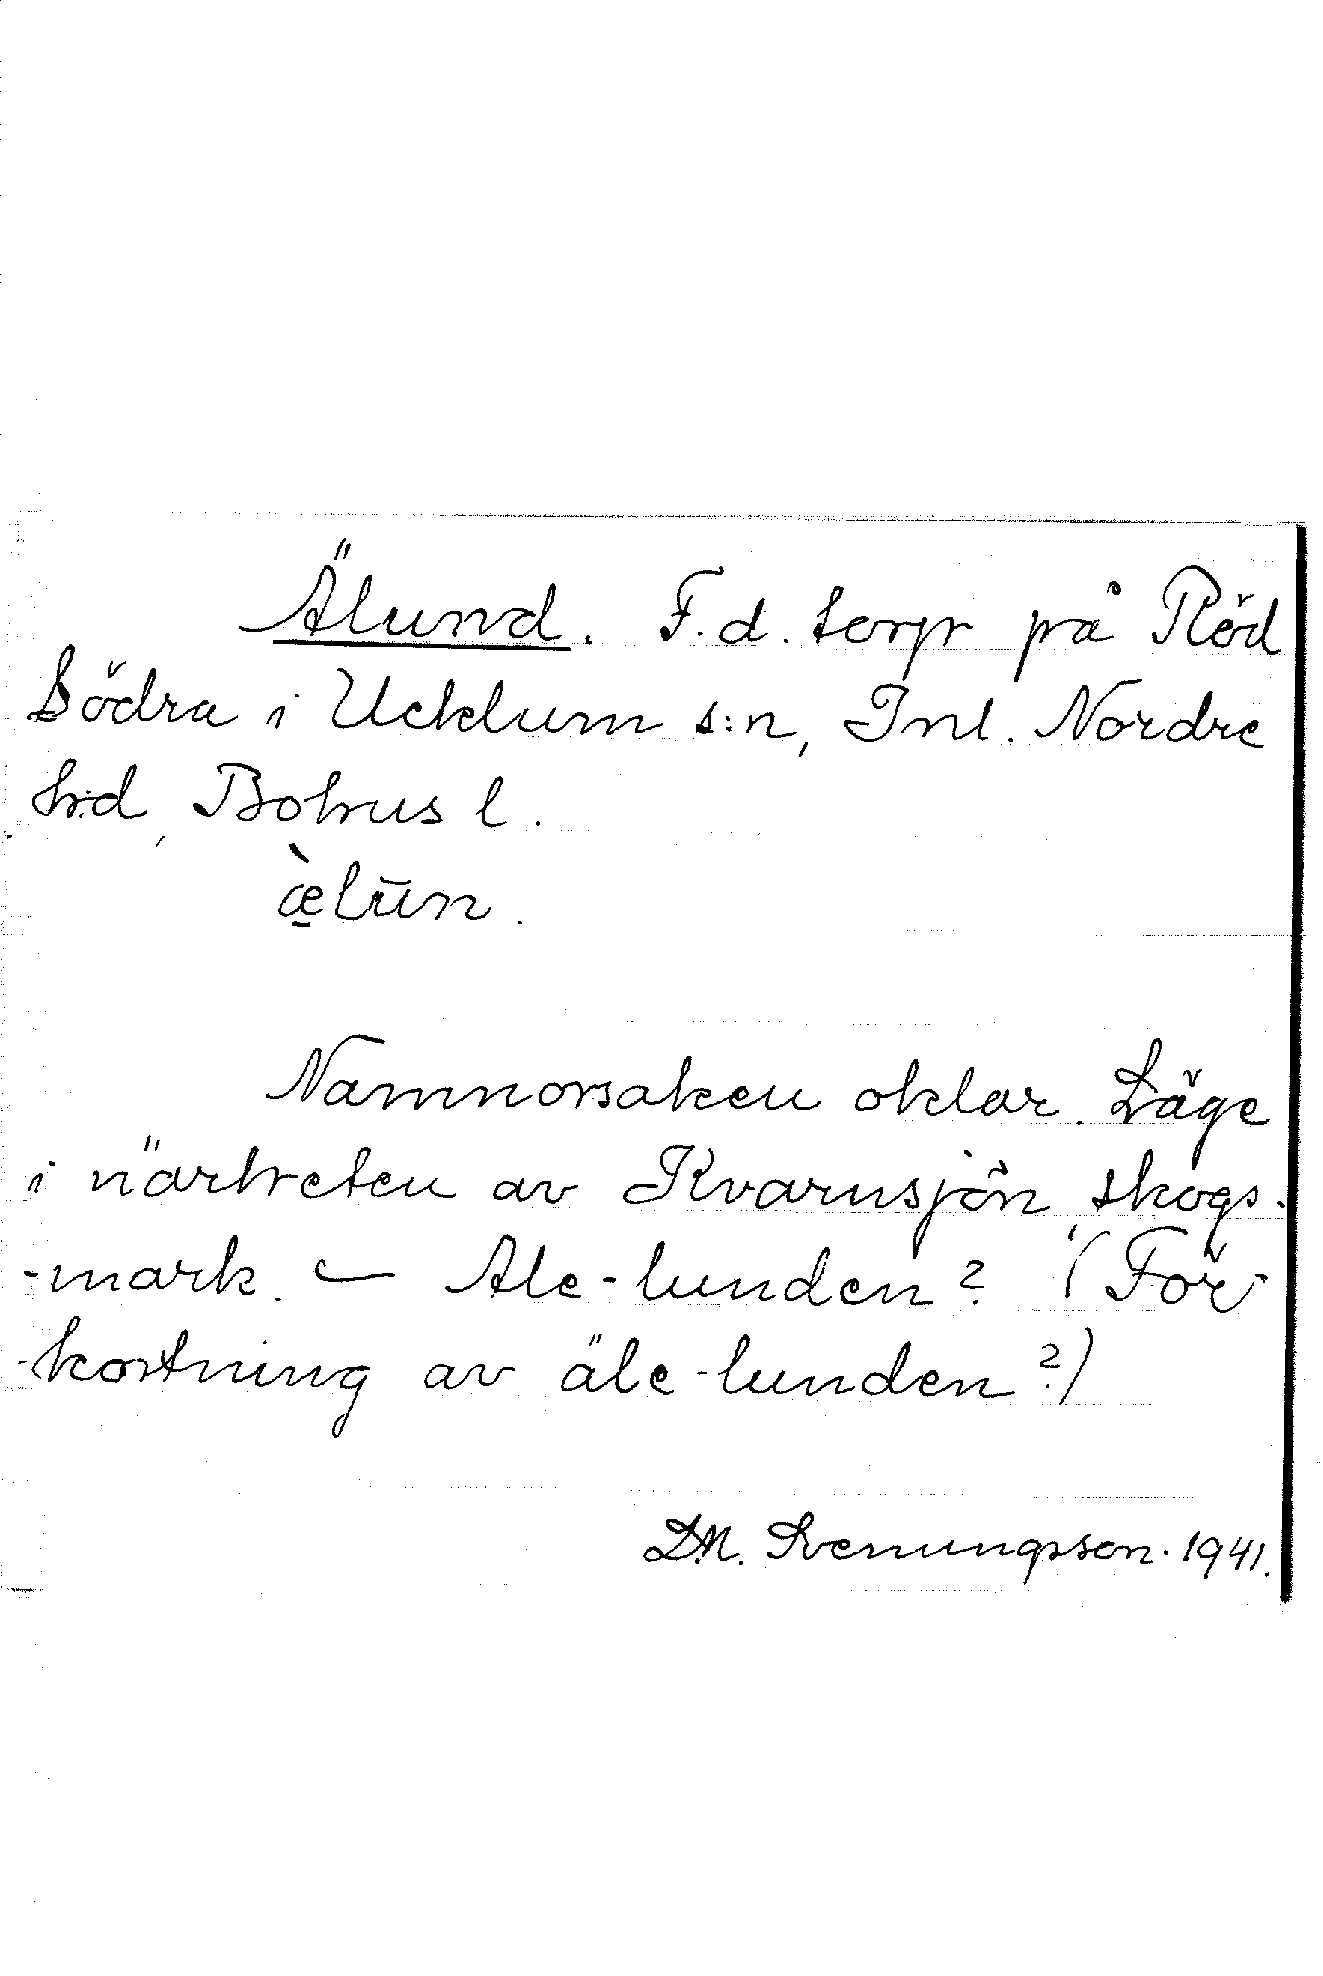 Älund. F.d. torp på Röd
Södra i Ucklum s:n, Inl. Nordre
h:d, Bohus l.
æ̱̀lūn.
Namnorsaken oklar. Läge
i närheten av Kvarnsjön, skogs-
-mark. — Ale-lunden? (För-
-kortning av äle-lunden?)
D.M. Svenungsson. 1941.